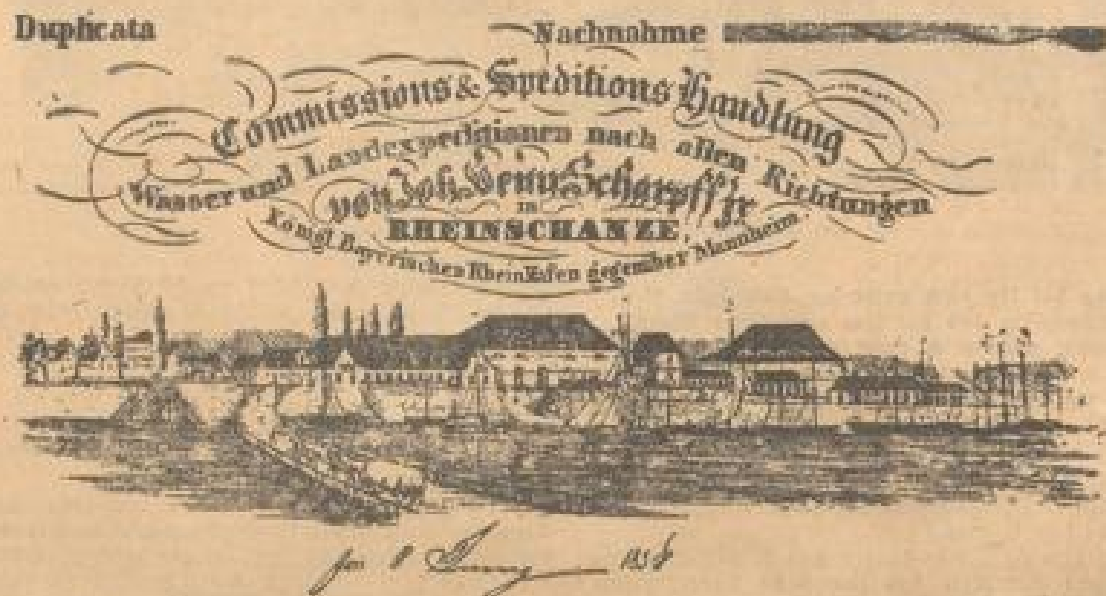 Duplicata Nachnahme
Commissions & Speditions Handlung
Wasser und Landexpeditionen nach allen Richtungen
von Joh. Heinr. Scharpff jr
in
RHEINSCHANZE,
Königl Bayerischen Rheinhafen gegenüber Mannheim.